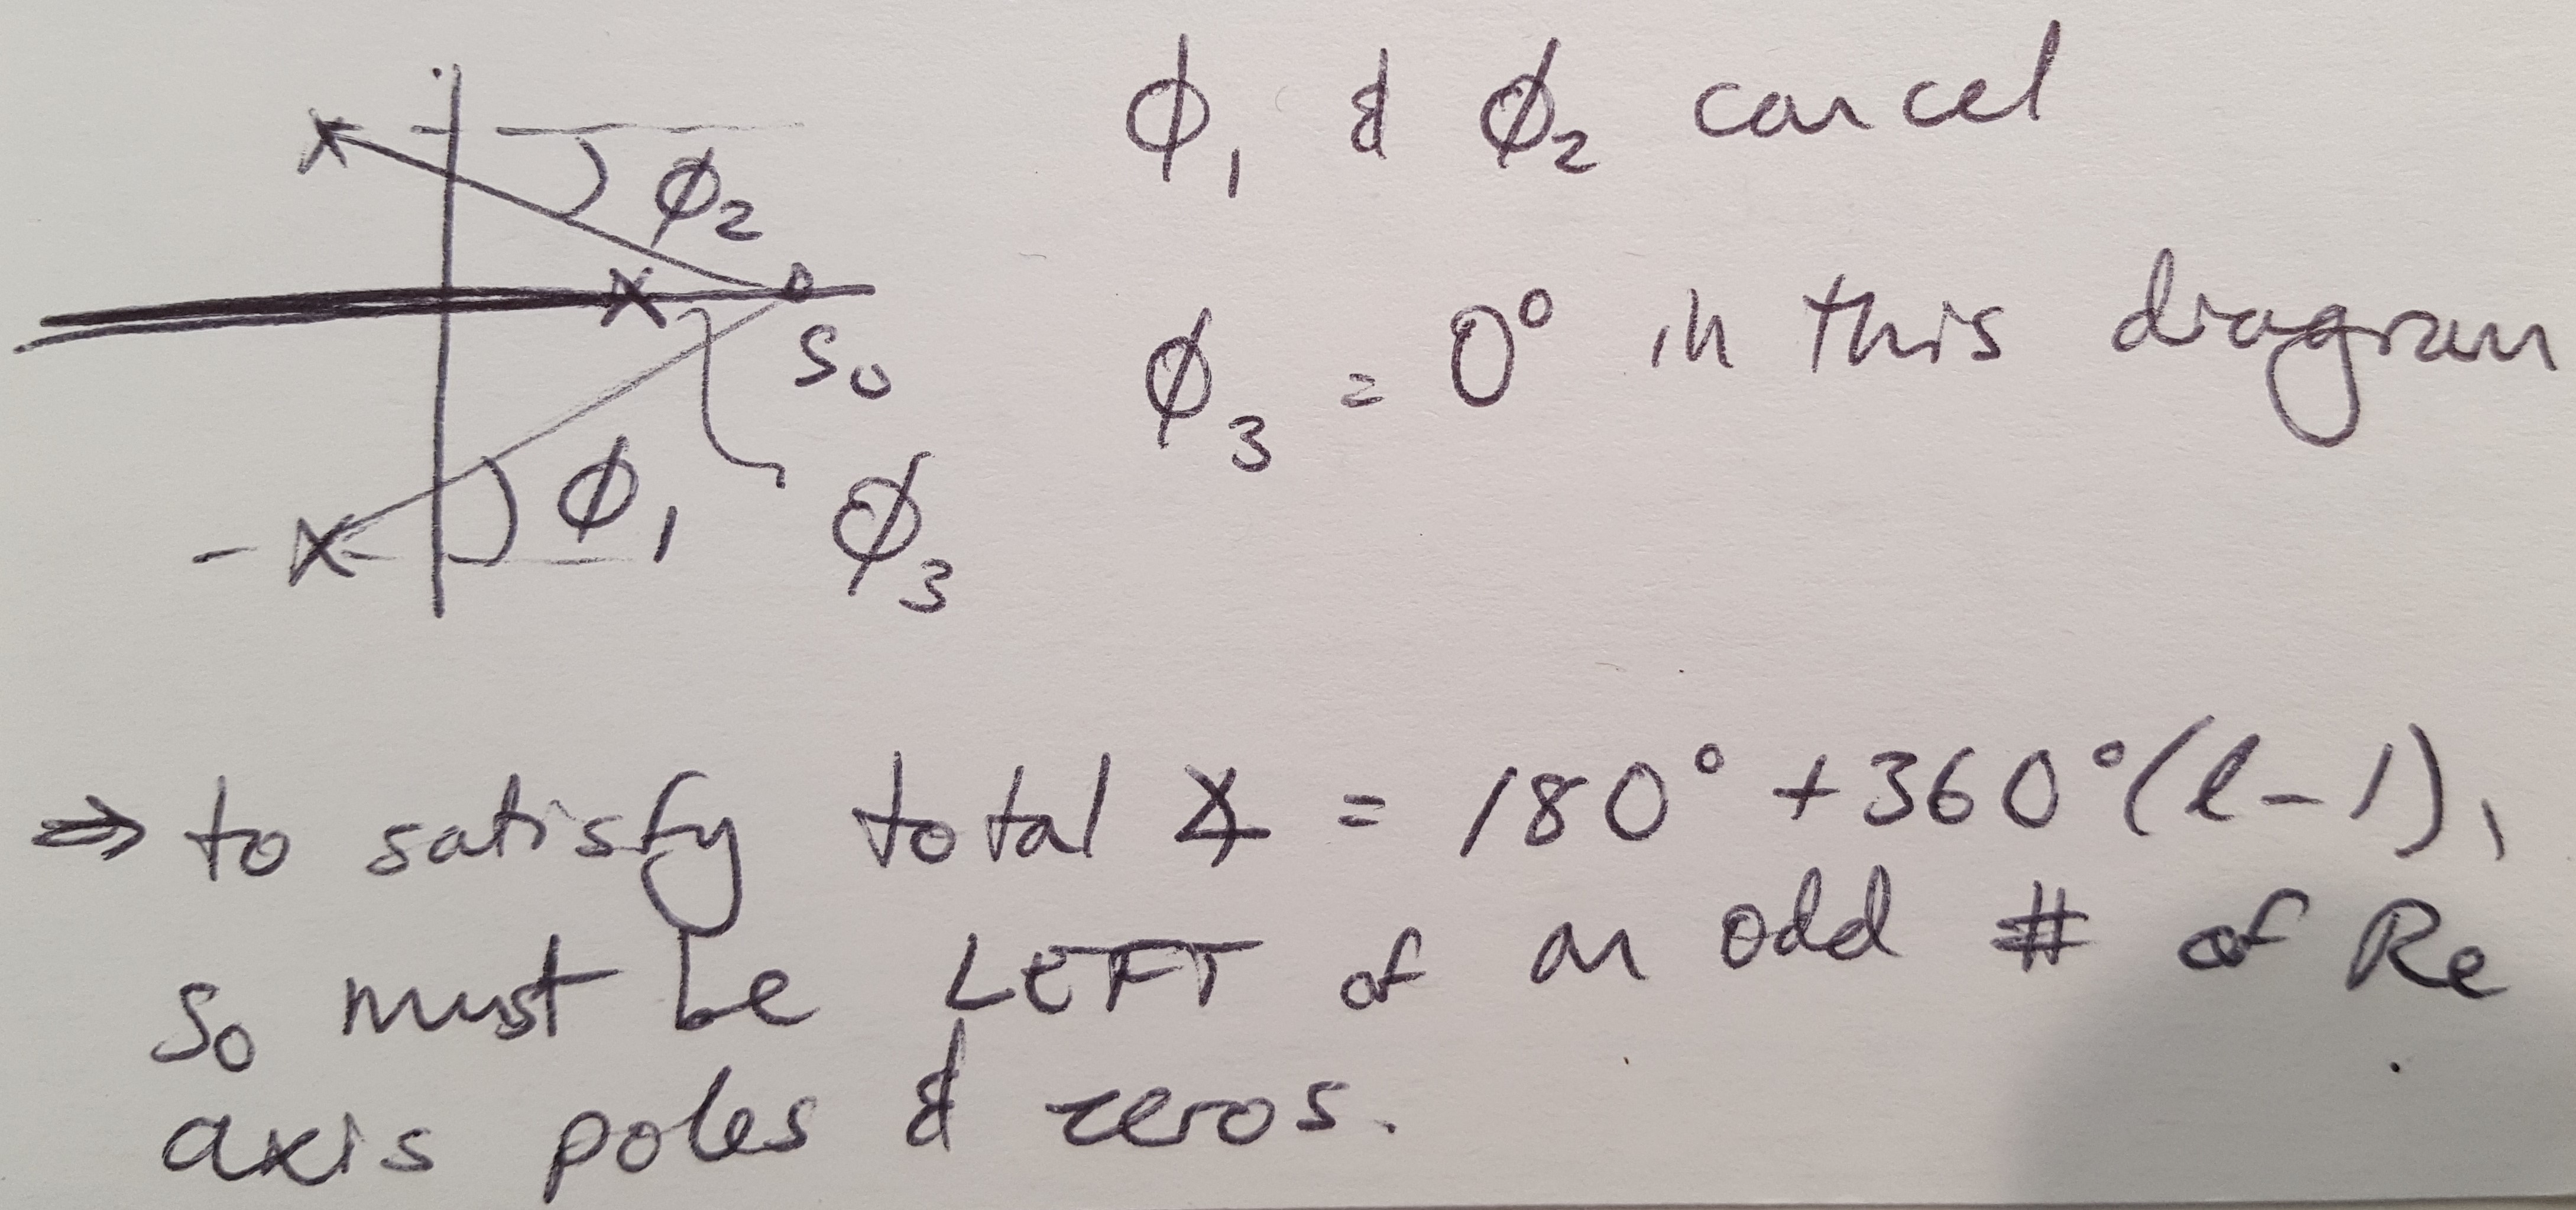 ϕ₁ & ϕ₂ cancel
ϕ₂
ϕ₃ = 0° in this diagram
S₀
ϕ₁
ϕ₃
⇒ to satisfy total ∡ = 180° + 360°(l-1),
S₀ must be LEFT of an odd # of Re
axis poles & zeros.